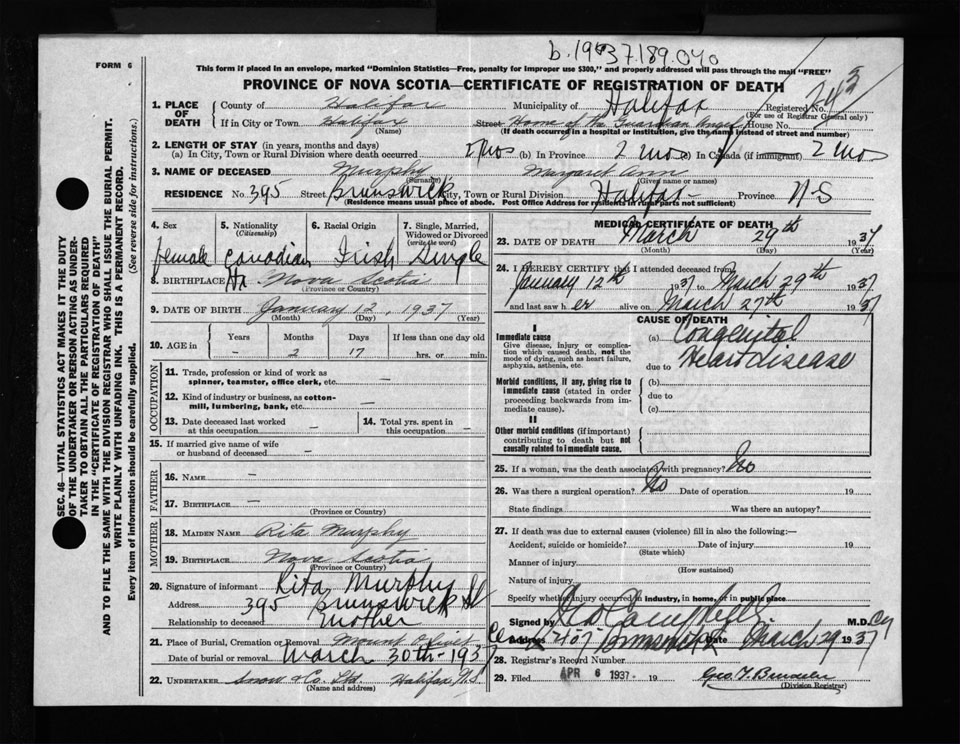 b.1937.189.040
FORM 6
This form if placed in an envelope, marked "Dominion Statistics—Free, penalty for improper use $300," and properly addressed will pass through the mail "FREE"
PROVINCE OF NOVA SCOTIA—CERTIFICATE OF REGISTRATION OF DEATH
1. PLACE OF DEATH
County of Halifax Municipality of Halifax Registered No.
(For use of Registrar General only)
If in City or Town Halifax Street Home of the Guardian Angel House No.
(Name) (If death occurred in a hospital or institution, give the name instead of street and number)
2. LENGTH OF STAY (in years, months and days)
(a) In City, Town or Rural Division where death occurred 2 mos (b) In Province 2 mos (c) In Canada (if immigrant) 2 mos
3. NAME OF DECEASED Murphy Margaret Ann
(Surname) (Given name or names)
RESIDENCE No. 395 Street Brunswick City, Town or Rural Division Halifax Province N-S
(Residence means usual place of abode. Post Office Address for patients in rural parts not sufficient)
4. Sex 5. Nationality 6. Racial Origin 7. Single, Married,
(Citizenship) Widowed or Divorced
(write the word)
female Canadian Irish Single
8. BIRTHPLACE Nova Scotia
(Province or Country)
9. DATE OF BIRTH January 12, 1937
(Month) (Day) (Year)
10. AGE in Years Months Days If less than one day old
- 2 17 hrs. or min.
OCCUPATION
11. Trade, profession or kind of work as
spinner, teamster, office clerk, etc. —
12. Kind of industry or business, as cotton-
mill, lumbering, bank, etc. —
13. Date deceased last worked
at this occupation — 14. Total yrs. spent in
this occupation —
15. If married give name of wife
or husband of deceased —
FATHER
16. NAME —
17. BIRTHPLACE —
(Province or Country)
MOTHER
18. MAIDEN NAME Rita Murphy
19. BIRTHPLACE Nova Scotia
(Province or Country)
20. Signature of informant Rita Murphy
Address 395 Brunswick St
Relationship to deceased mother
21. Place of Burial, Cremation or Removal Mount Olivet
Date of burial or removal March 30th-1937
22. UNDERTAKER Snow & Co. Ltd. Halifax, N.S.
(Name and address)
MEDICAL CERTIFICATE OF DEATH
23. DATE OF DEATH March 29th 1937
(Month) (Day) (Year)
24. I HEREBY CERTIFY that I attended deceased from
January 12th 1937 to March 29th 1937
and last saw her alive on March 27th 1937
CAUSE OF DEATH
I
Immediate cause (a) Congenital
Give disease, injury or complication which caused death, not the mode of dying, such as heart failure, asphyxia, asthenia, etc.
due to Heart disease
Morbid conditions, if any, giving rise to immediate cause (stated in order proceeding backwards from immediate cause).
(b)
due to
(c)
II
Other morbid conditions (if important) contributing to death but not causally related to immediate cause.
25. If a woman, was the death associated with pregnancy? No
26. Was there a surgical operation? No Date of operation 19
State findings Was there an autopsy?
27. If death was due to external causes (violence) fill in also the following:—
Accident, suicide or homicide? Date of injury 19
(State which)
Manner of injury
(How sustained)
Nature of injury
Specify whether injury occurred in industry, in home, or in public place
Signed by Geo Campbell M.D.
Address 407 Brunswick Date March 29 1937
28. Registrar's Record Number
29. Filed APR 6 1937 19
(Division Registrar)
SEC. 46—VITAL STATISTICS ACT MAKES IT THE DUTY
OF THE UNDERTAKER OR PERSON ACTING AS UNDER-
TAKER TO OBTAIN ALL THE PARTICULARS REQUIRED
IN THE "CERTIFICATE OF REGISTRATION OF DEATH"
AND TO FILE THE SAME WITH THE DIVISION REGISTRAR WHO SHALL ISSUE THE BURIAL PERMIT.
WRITE PLAINLY WITH UNFADING INK. THIS IS A PERMANENT RECORD.
Every item of information should be carefully supplied. (See reverse side for instructions.)